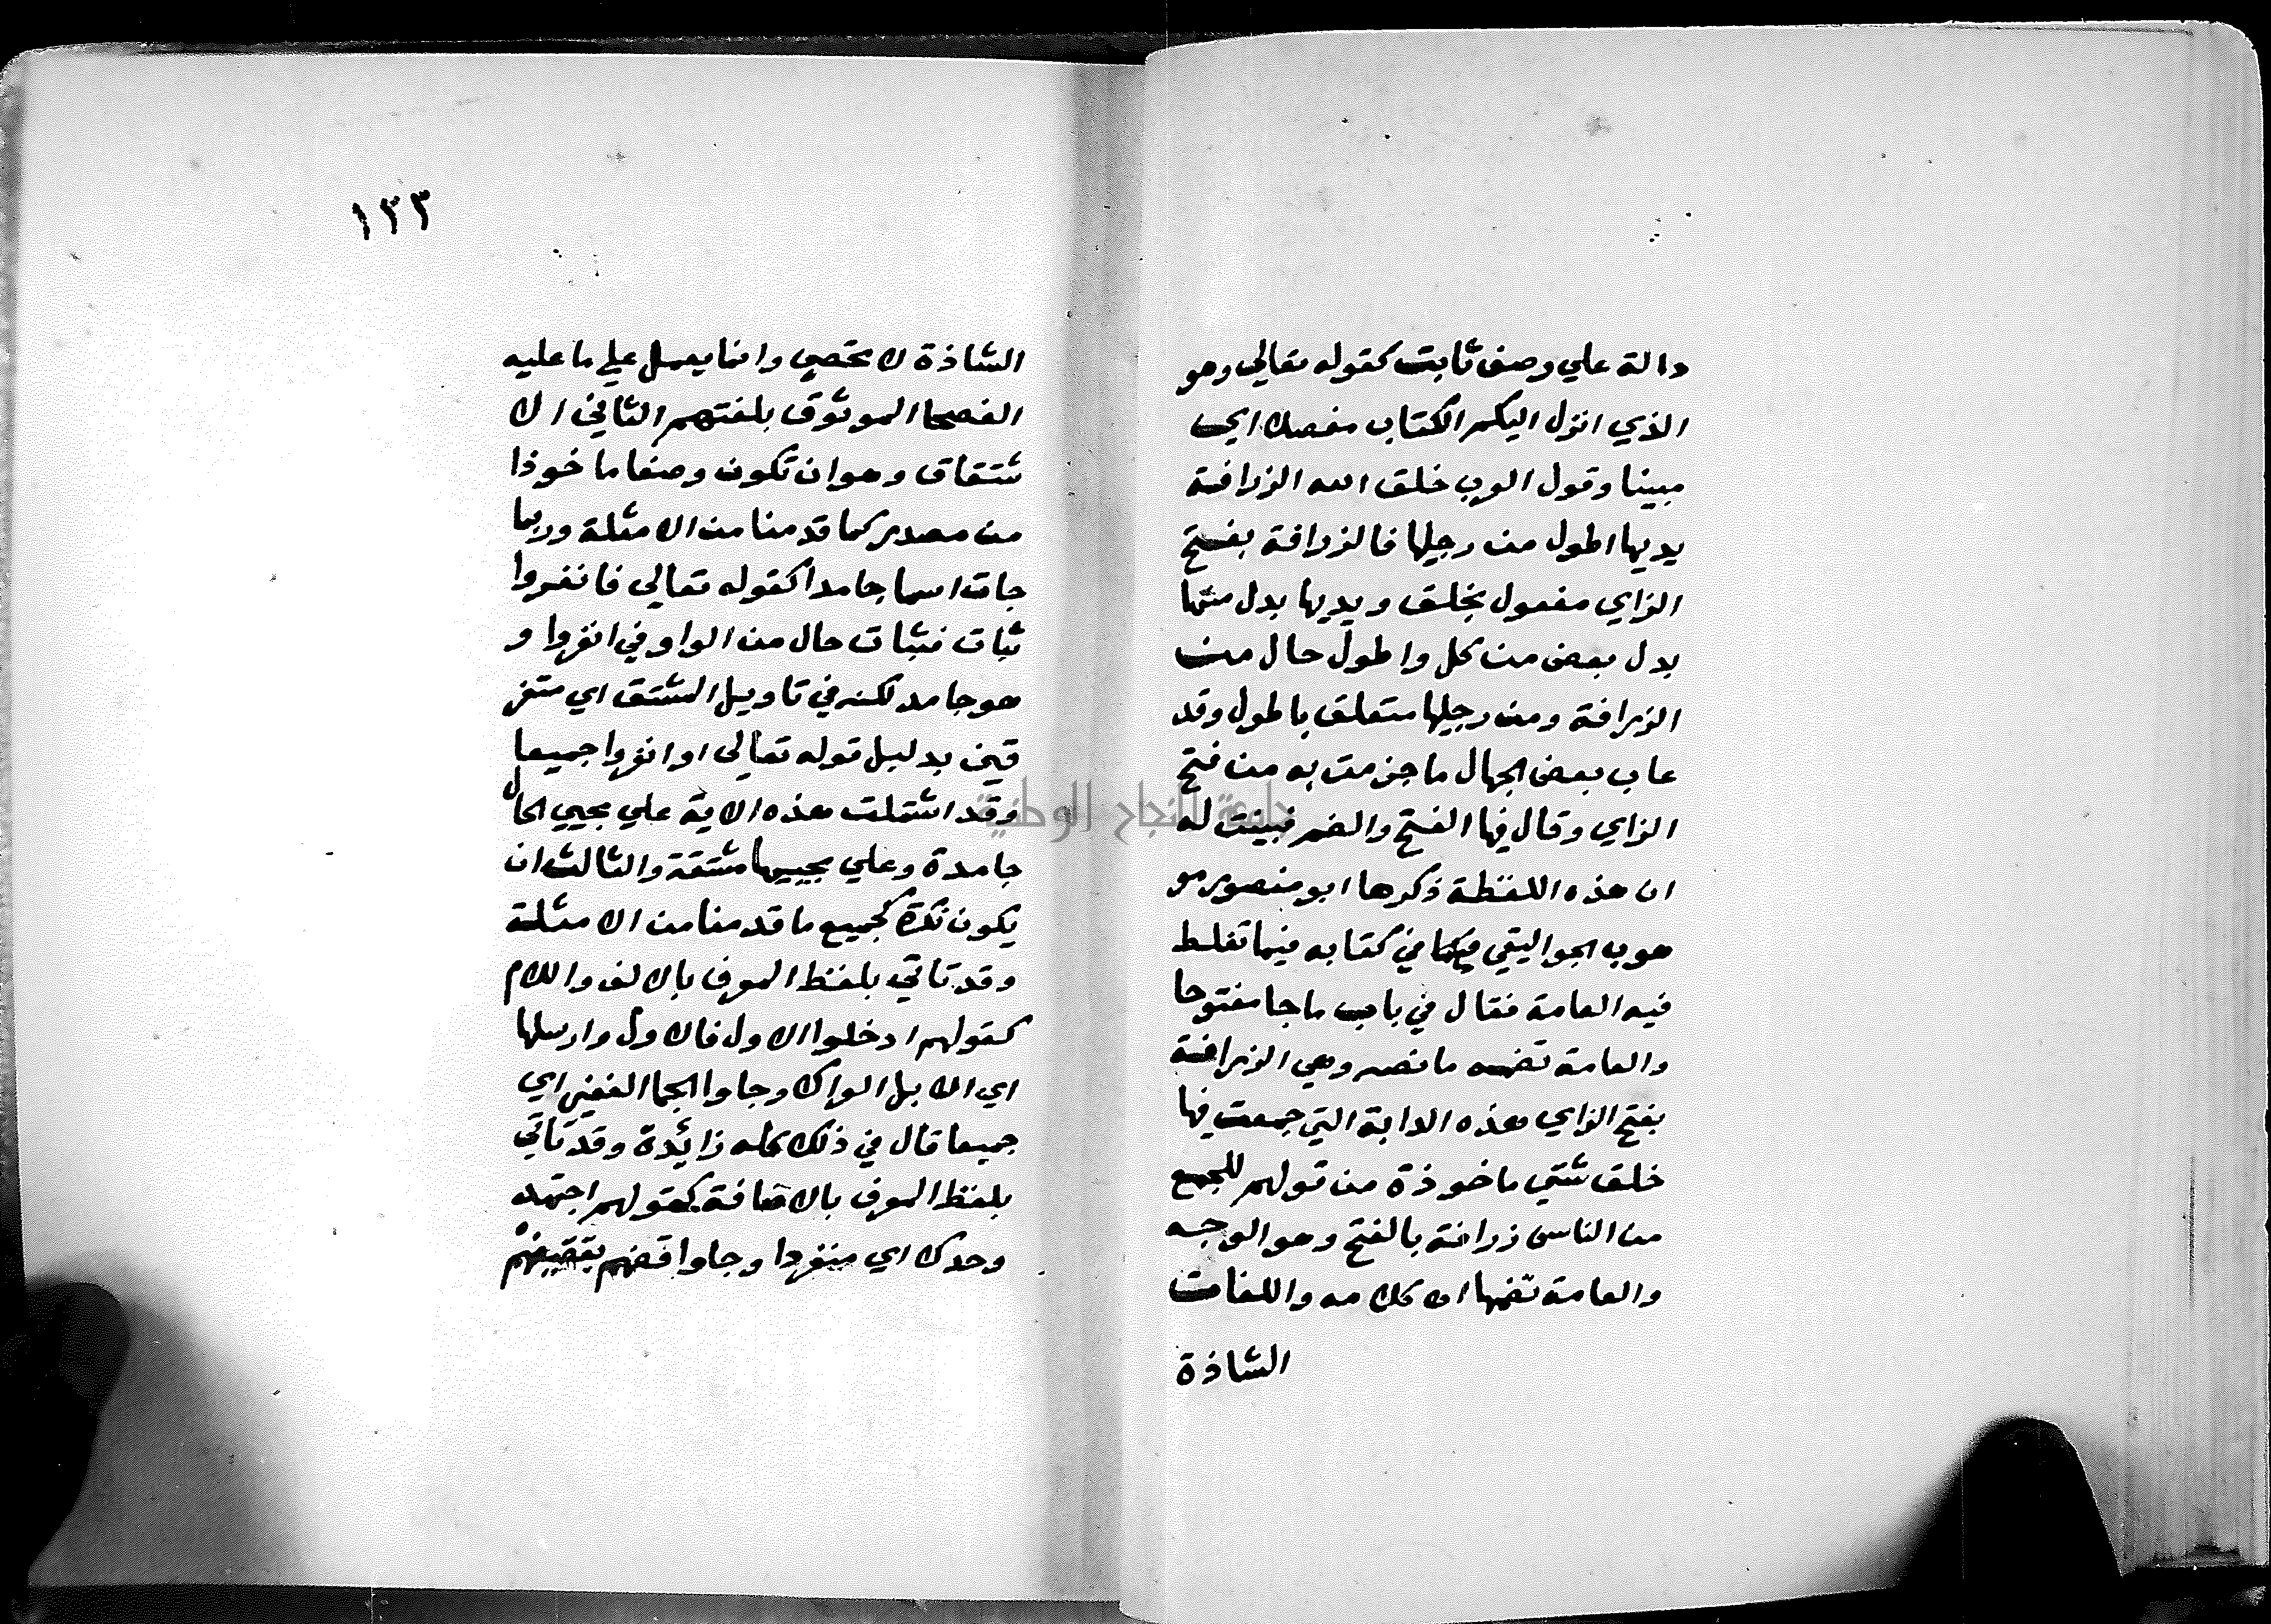 دالة علي وصف ثابت كقوله تعالي وهو
الذي انزل اليكم الكتاب مفصلا اي
مبينا وقول العرب خلق الله الزرافة
يديها اطول من رجليها فالزرافة بفتح
الزاي مفعول بخلق ويديها بدل منها
بدل بعض من كل واطول حال من
الزرافة ومن رجليها متعلق باطول وقد
عاب بعض الجهال ما جزمت به من فتح
الزاي وقال فيها الفتح والضم فبينت له
ان هذه اللفظة ذكرها ابو منصور مو
هوب الجواليقي في كتابه فيما تغلط
فيه العامة فقال في باب ما جا مفتوحا
والعامة تضمه ما نصه وهي الزرافة
بفتح الزاي هذه الدابة التي جمعت فيها
خلق شتي ماخوذة من قولهم للجمع
من الناس زرافة بالفتح وهو الوجه
والعامة تضمها اه كلامه واللغات
الشاذة
١٣٣
الشاذة لا تحصي وانما يعمل علي ما عليه
الفصحا الموثوق بلغتهم الثاني الا
شتقاق وهو ان تكون وصفا ماخوذا
من مصدر كما قدمنا من الامثلة وربما
جات اسما جامدا كقوله تعالي فانفروا
ثبات فثبات حال من الواو في انفروا و
هو جامد لكنه في تاويل المشتق اي متفر
قين بدليل قوله تعالي او انفروا جميعا
وقد اشتملت هذه الاية علي مجيي الحال
جامدة وعلي مجييها مشتقة والثالث ان
يكون نكرة كجميع ما قدمنا من الامثلة
وقد تاتي بلفظ المعرف بالالف واللام
كقولهم ادخلوا الاول فالاول وارسلها
اي الابل العراك وجاوا الجما الغفير اي
جميعا قال في ذلك كله زائدة وقد تاتي
بلفظ المعرف بالاضافة كقولهم اجتهد
وحدك اي منفردا وجاوا قضهم بقضيضهم